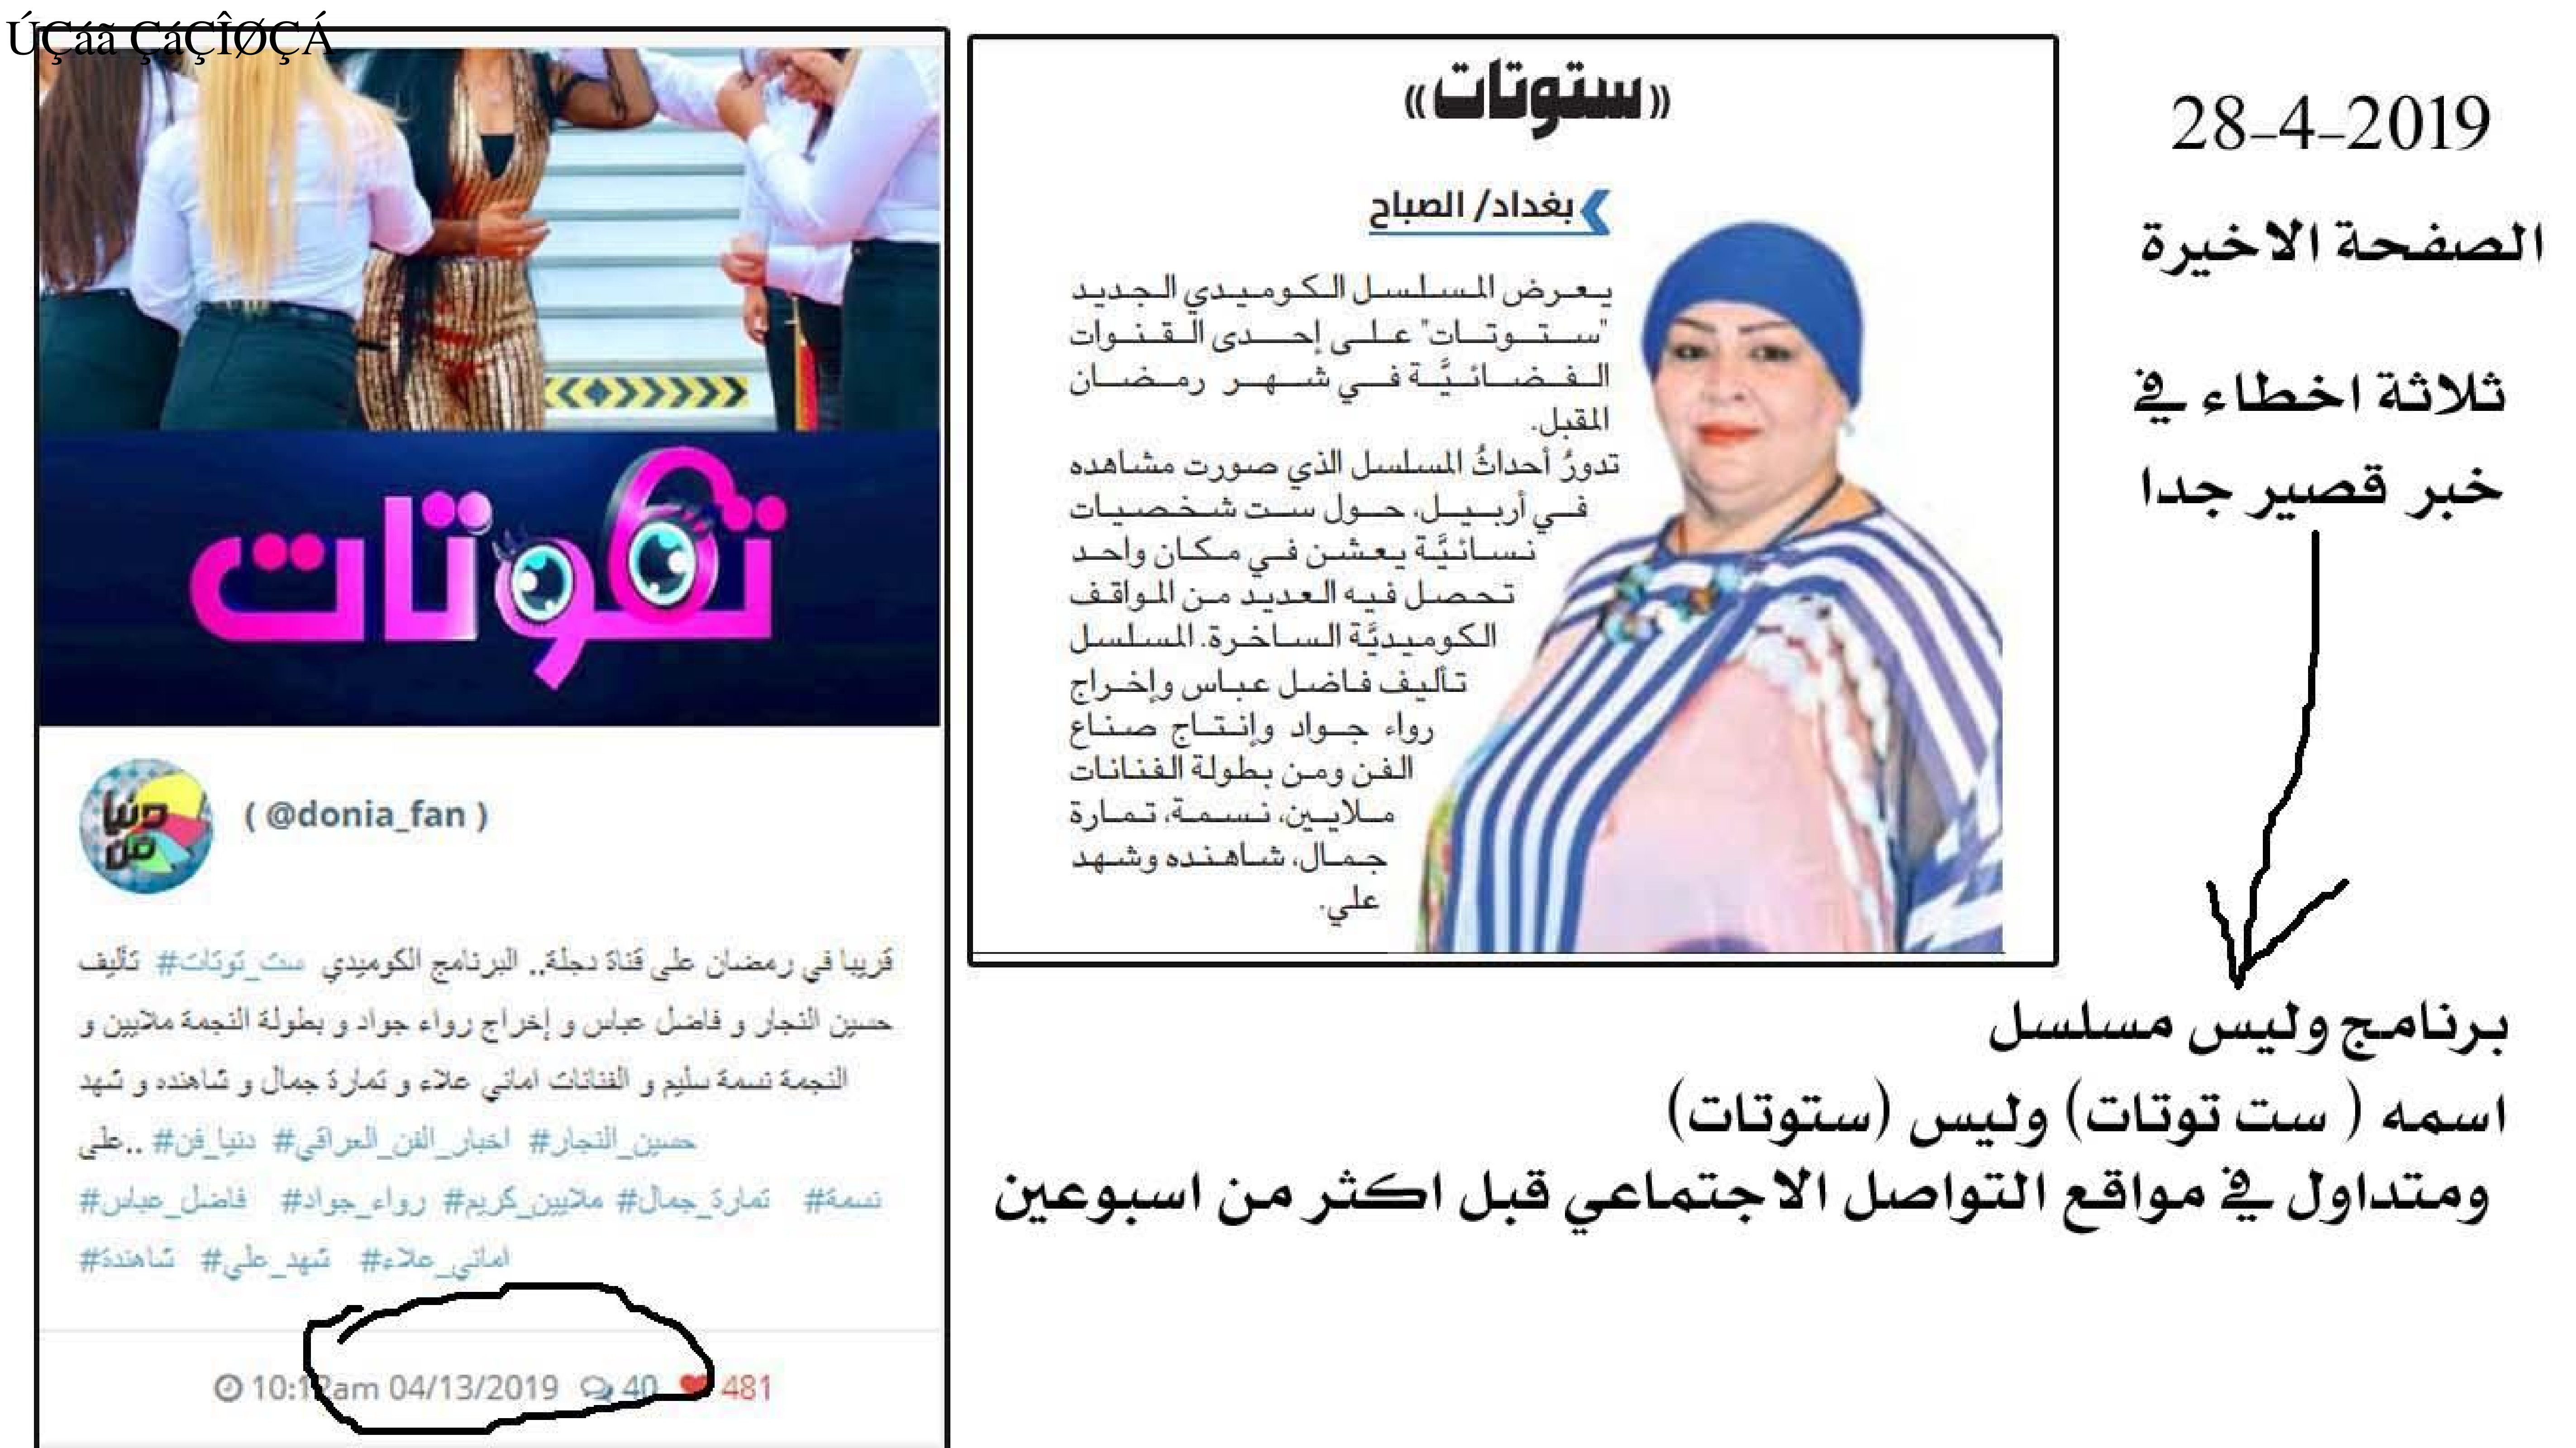 ÚÇáã ÇáÇÎØÇÁ
28-4-2019
الصفحة الاخيرة
ثلاثة اخطاء في
خبر قصير جدا
«ستوتات»
بغداد/ الصباح
يعرض المسلسل الكوميدي الجديد
"ستوتات" على إحدى القنوات
الفضائيَّة في شهر رمضان
المقبل.
تدورُ أحداثُ المسلسل الذي صورت مشاهده
في أربيل، حول ست شخصيات
نسائيَّة يعشن في مكان واحد
تحصل فيه العديد من المواقف
الكوميديَّة الساخرة. المسلسل
تأليف فاضل عباس وإخراج
رواء جواد وإنتاج صناع
الفن ومن بطولة الفنانات
ملايين، نسمة، تمارة
جمال، شاهنده وشهد
علي.
برنامج وليس مسلسل
اسمه ( ست توتات) وليس (ستوتات)
ومتداول في مواقع التواصل الاجتماعي قبل اكثر من اسبوعين
ت6وتات
دنيا
فن
( @donia_fan )
قريبا في رمضان على قناة دجلة.. البرنامج الكوميدي #ست_توتات تأليف
حسين النجار و فاضل عباس و إخراج رواء جواد و بطولة النجمة ملايين و
النجمة نسمة سليم و الفنانات اماني علاء و تمارة جمال و شاهنده و شهد
علي.. #دنيا_فن #اخبار_الفن_العراقي #حسين_النجار
#فاضل_عباس #رواء_جواد #ملايين_كريم #تمارة_جمال #نسمة
#شاهندة #شهد_علي #اماني_علاء
10:12am 04/13/2019 40 481